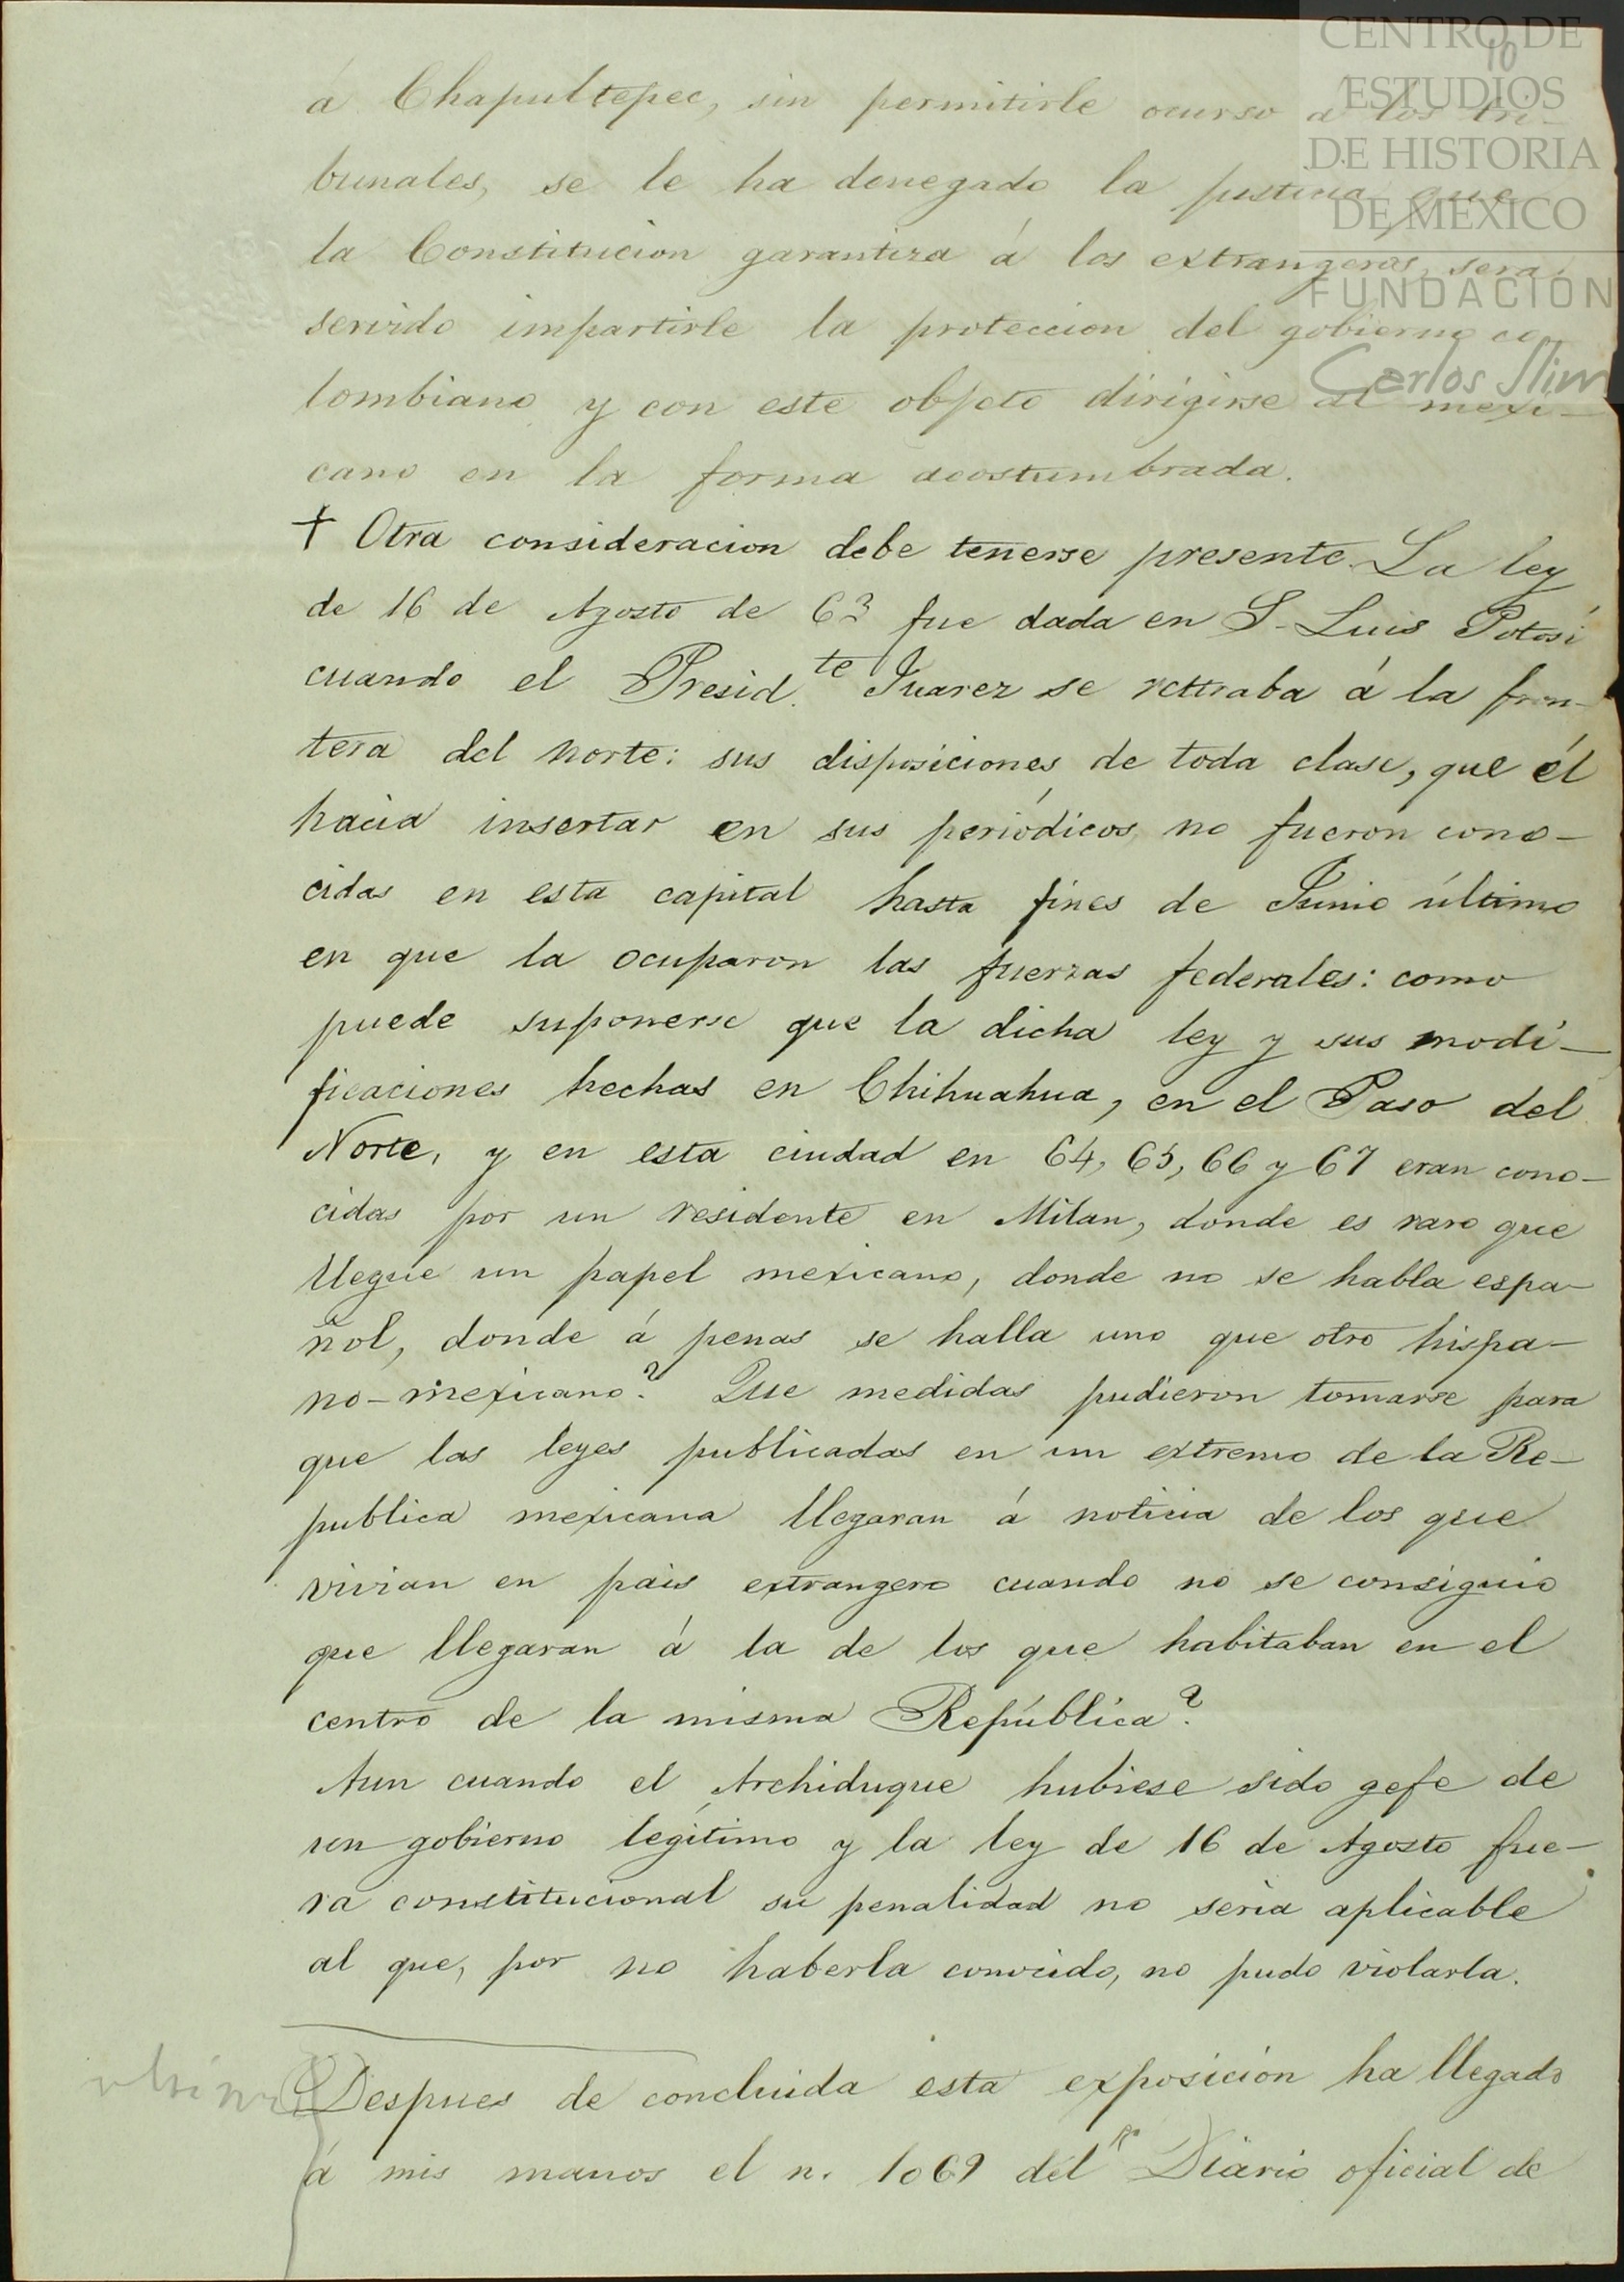 CENTRO DE
ESTUDIOS
DE HISTORIA
DE MÉXICO
FUNDACIÓN
Carlos Slim
10
á Chapultepec, sin permitirle ocurso a los tri-
bunales, se le ha denegado la justicia que
la Constitucion garantiza á los extrangeros, será
servido impartirle la proteccion del gobierno co-
lombiano y con este objeto dirigirse al mexi-
cano en la forma acostumbrada.
† Otra consideracion debe tenerse presente. La ley
de 16 de Agosto de 63 fue dada en S. Luis Potosí
cuando el Presid.te Juarez se retiraba á la fron-
tera del norte: sus disposiciones de toda clase, que él
hacia insertar en sus periódicos no fueron cono-
cidas en esta capital hasta fines de Junio último
en que la ocuparon las fuerzas federales: como
puede suponerse que la dicha ley y sus modi-
ficaciones hechas en Chihuahua, en el Paso del
Norte, y en esta ciudad en 64, 65, 66 y 67 eran cono-
cidas por un residente en Milan, donde es raro que
llegue un papel mexicano, donde no se habla espa-
ñol, donde á penas se halla uno que otro hispa-
no-mexicano? Que medidas pudieron tomarse para
que las leyes publicadas en un extremo de la Re-
publica mexicana llegaran á noticia de los que
vivian en pais extrangero cuando no se consiguio
que llegaran á la de los que habitaban en el
centro de la misma República?
Aun cuando el Archiduque hubiese sido gefe de
un gobierno legítimo y la ley de 16 de Agosto fue-
ra constitucional su penalidad no seria aplicable
al que, por no haberla conocido, no pudo violarla.
Despues de concluida esta exposición ha llegado
á mis manos el n. 1069 del Diario oficial de